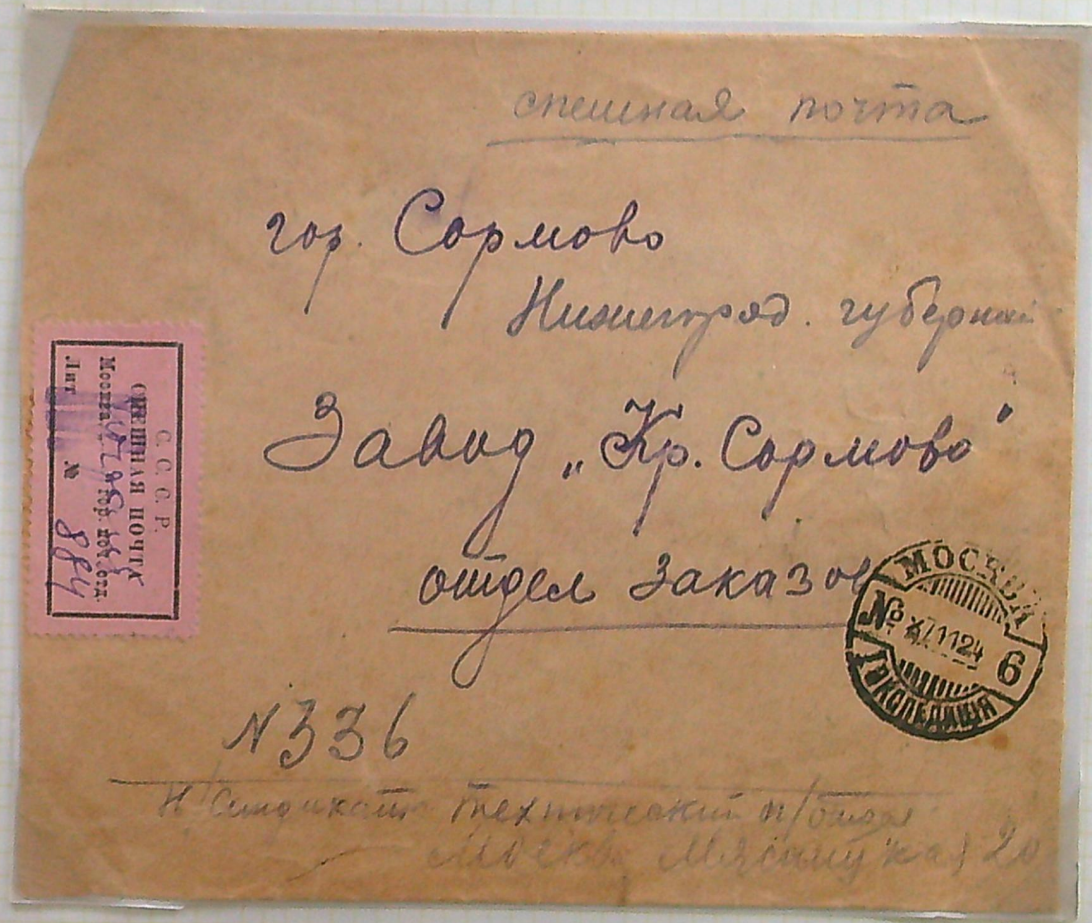 спешная почта
гор. Сормово
Нижегород. губернии
Завод „Кр. Сормово"
отдел заказов
С. С. С. Р.
СПЕШНАЯ ПОЧТА
Москва, гор. поч. отд.
Лит. № 884
МОСКВА
№ 11 24 6
N 336
Н/ Синдикат Технический п/отдел
Москва Мясницкая 20